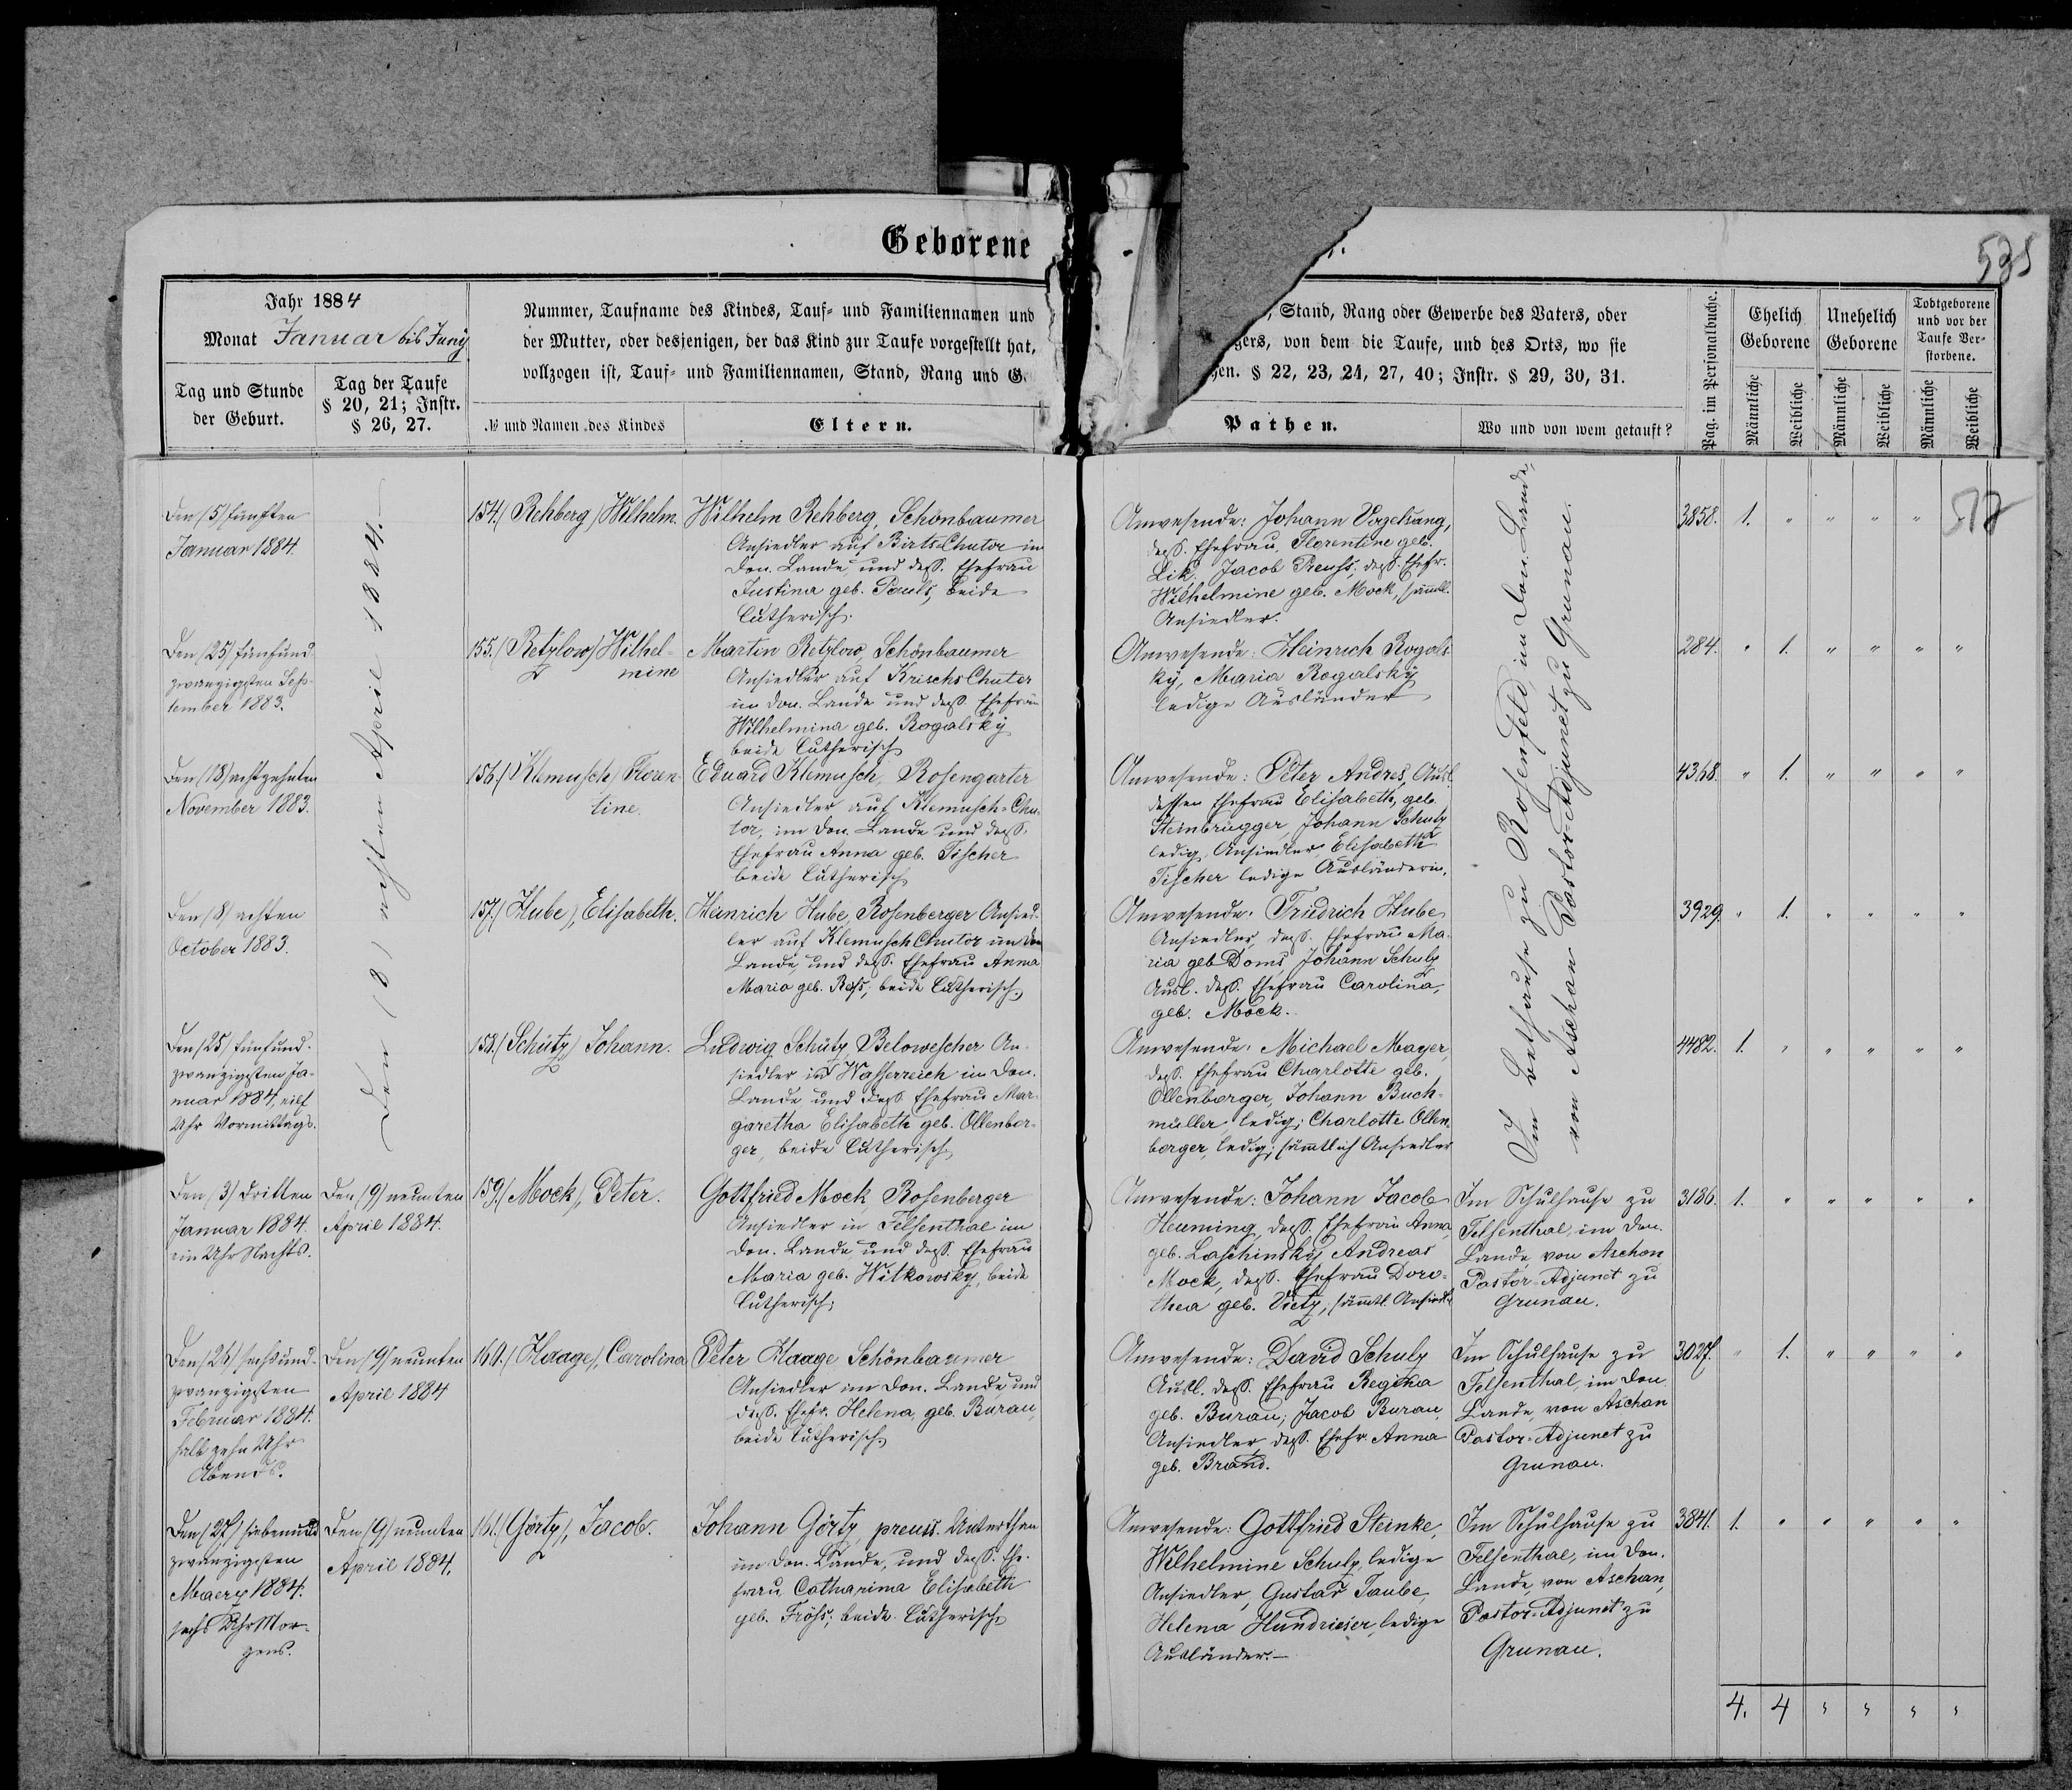 Geborene
535
Jahr 1884
Monat Januar bis Juny
Tag und Stunde
der Geburt.
Tag der Taufe
§ 20, 21; Instr.
§ 26, 27.
Nummer, Taufname des Kindes, Tauf- und Familiennamen und
der Mutter, oder desjenigen, der das Kind zur Taufe vorgestellt hat,
vollzogen ist, Tauf- und Familiennamen, Stand, Rang und G.
№ und Namen des Kindes
Eltern.
Stand, Rang oder Gewerbe des Vaters, oder
gers, von dem die Taufe, und des Orts, wo sie
hen. § 22, 23, 24, 27, 40; Instr. § 29, 30, 31.
Pathen.
Wo und von wem getauft?
Pag. im Personalbuche.
Ehelich
Geborene
Unehelich
Geborene
Todtgeborene
und vor der
Taufe Ver-
storbene.
Männliche
Weibliche
Männliche
Weibliche
Männliche
Weibliche
Den /5/ fünften
Januar 1884.
Den /8/ achten April 1884.
154./ Rehberg, / Wilhelm.
Wilhelm Rehberg, Schönbaumer
Ansiedler auf Birts Chutor im
Don. Lande, und dess. Ehefrau
Justina geb. Pauls, beide
Lutherisch.
Anwesende: Johann Vogelsang,
dess. Ehefrau, Florentine geb.
Lik, Jacob Preuss, dess. Ehefr.
Wilhelmine geb. Mock, sämtl.
Ansiedler.
Im Bethause zu Rosenfeld, im Don. Lande,
von Aschan Pastor-Adjunct zu Grunau.
3858. 1. " " " "
517
Den /25/ fünfund
zwanzigsten Sep-
tember 1883.
155./ Retzlow / Wilhel-
mine
Martin Retzlow, Schönbaumer
Ansiedler auf Krischs Chutor
im Don. Lande und dess. Ehefrau
Wilhelmina geb. Rogalsky
beide Lutherisch
Anwesende: Heinrich Rogals
ky, Maria Rogalsky
ledige Ausländer
284. " 1. " " " "
Den /18/ achtzehnten
November 1883.
156./ Klemusch / Floren-
tine.
Eduard Klemusch, Rosengarter
Ansiedler auf Klemusch-Chu-
tor, im Don. Lande und dess.
Ehefrau Anna geb. Fischer
beide Lutherisch
Anwesende: Peter Andres, Ausl.
dessen Ehefrau Elisabeth, geb.
Steinbrügger, Johann Schulz
ledig, Ansiedler Elisabeth
Fischer ledige Ausländerin.
4368. " 1. " " " "
Den /8/ achten
October 1883.
157./ Hube /, Elisabeth.
Heinrich Hube, Rosenberger Ansied-
ler auf Klemusch Chutor im Don
Lande, und dess. Ehefrau Anna
Maria geb. Ress, beide Lutherisch.
Anwesende: Friedrich Hube
Ansiedler, dess. Ehefrau Ma-
ria geb Doms, Johann Schulz
Ausl. dess. Ehefrau Carolina,
geb. Mock.
3929. " 1. " " " "
Den /25/ fünfund-
zwanzigsten Ja-
nuar 1884, eilf
Uhr Vormittags.
158./ Schütz / Johann.
Ludwig Schütz, Belowescher An-
siedler in Wasserreich im Don.
Lande und dess Ehefrau Mar-
garetha Elisabeth geb. Ollenbor-
ger, beide Lutherisch,
Anwesende: Michael Mayer,
dess. Ehefrau Charlotte geb.
Ollenborger, Johann Buch-
müller, ledig; Charlotte Ollen
borger, ledig; sämtlich Ansiedler
4482. 1. " " " " "
Den /3/ dritten
Januar 1884.
ein Uhr Nachts.
Den /9/ neunten
April 1884.
159./ Mock /, Peter.
Gottfried Mock, Rosenberger
Ansiedler in Felsenthal im
Don. Lande und dess. Ehefrau
Maria geb. Witkowsky, beide
Lutherisch;
Anwesende: Johann Jacob
Heuming, dess. Ehefrau Anna,
geb. Laschinsky Andreas
Mock, dess. Ehefrau Doro-
thea geb. Vietz, sämtl. Ansiedl.
Im Schulhause zu
Felsenthal, im Don.
Lande, von Aschan
Pastor-Adjunct zu
Grunau.
3186. 1. " " " " "
Den /26/ sechsund-
zwanzigsten
Februar 1884.
halb zehn Uhr
Abends.
Den /9/ neunten
April 1884
160./ Haage /, Carolina
Peter Haage Schönbaumer
Ansiedler im Don. Lande, und
dess. Ehefr. Helena, geb. Burau,
beide Lutherisch.
Anwesende: David Schulz
Ausl. dess. Ehefrau Regina
geb. Burau; Jacob Burau,
Ansiedler, dess. Ehefr. Anna
geb. Brand.
Im Schulhause zu
Felsenthal, im Don
Lande, von Aschan
Pastor-Adjunct zu
Grunau.
3027. " 1. " " " "
Den /27/ siebenund
zwanzigsten
Maerz 1884.
sechs Uhr Mor-
gens.
Den /9/ neunten
April 1884.
161./ Görtz /, Jacob.
Johann Görtz, preuss. Unterthan
im Don. Lande, und dess. Ehe-
frau Catharina Elisabeth
geb. Fröhs; beide Lutherisch
Anwesende: Gottfried Steinke,
Wilhelmine Schulz, ledige
Ansiedler, Gustav Taube,
Helena Hundrieser, ledige
Ausländer.—
Im Schulhause zu
Felsenthal, im Don.
Lande, von Aschan,
Pastor-Adjunct zu
Grunau.
3841. 1. " " " " "
4. 4 " " " "